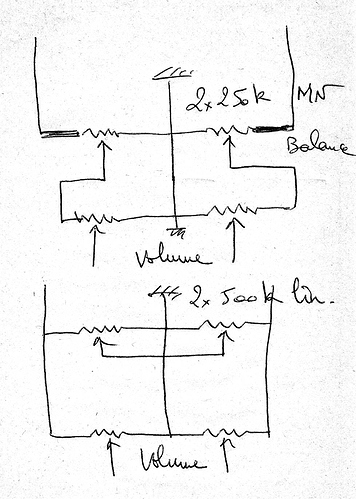 2x 250k MN
Balance
Volume
2x 500k lin.
Volume